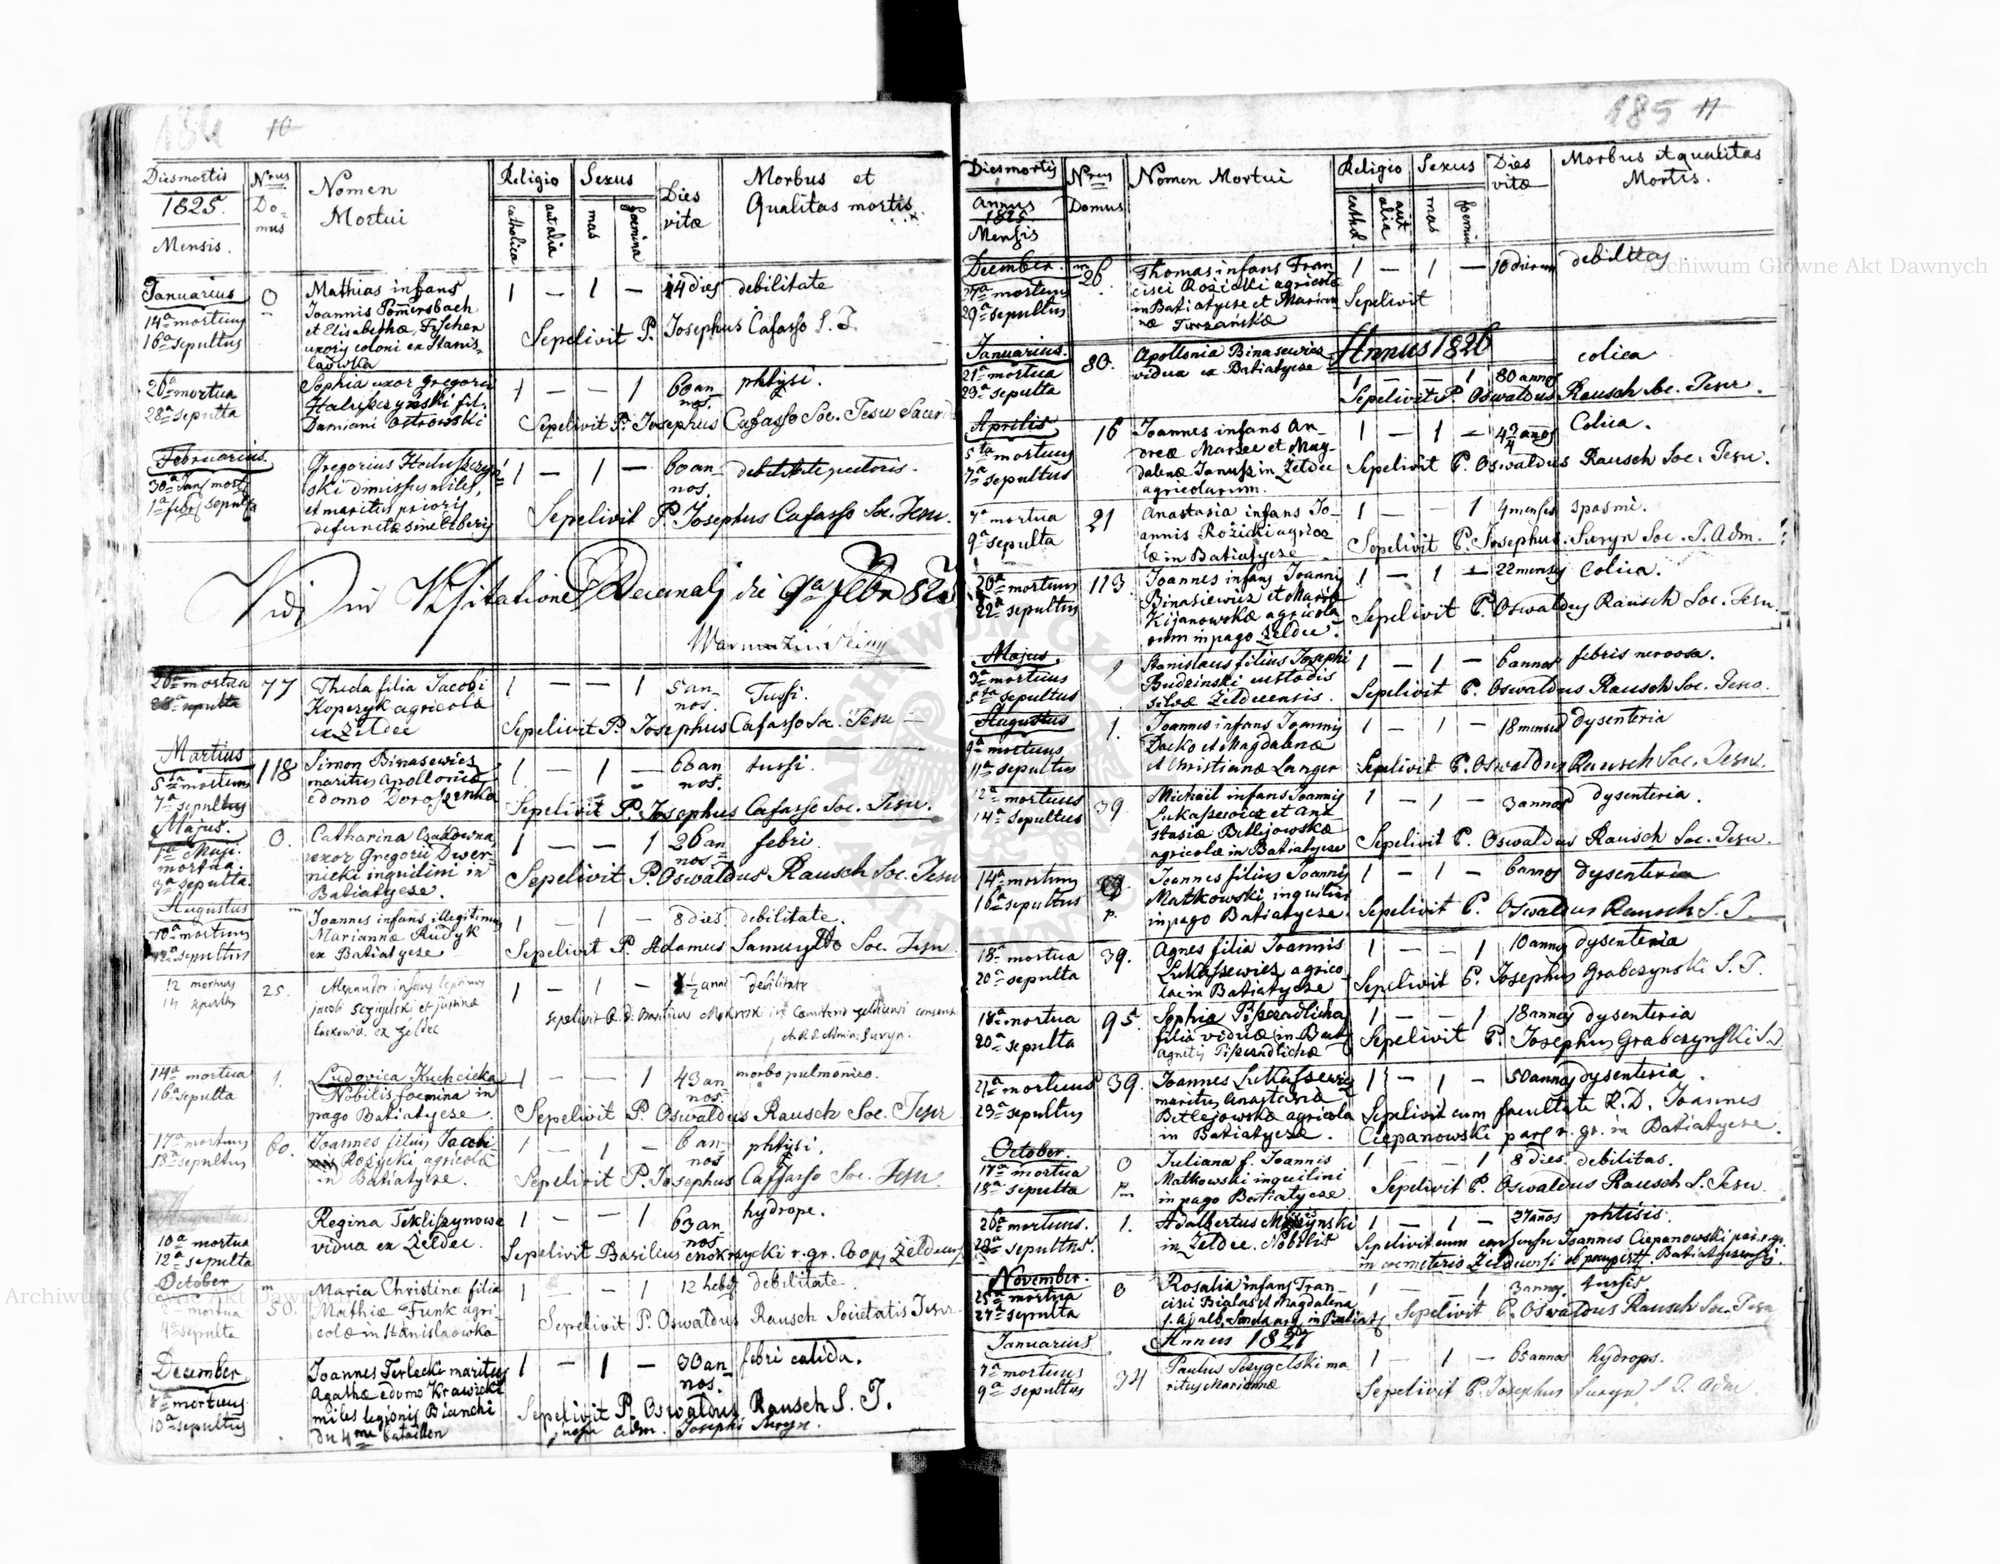 184 10
Dies mortis
1825.
Mensis.
Nrus Domus
Nomen
Mortui
Religio
catholica
aut alia
Sexus
mas
foemina
Dies
vitæ
Morbus et
Qualitas mortis
Januarius
14a mortuus
16a sepultus
0
Mathias infans
Joannis Pom̄ersbach
et Elisabethæ Fischer
uxoris coloni ex Stanis-
lawska
1 — 1 —
14 dies
debilitate
Sepelivit P. Josephus Cafasso S. J.
26a mortua
28a sepulta
Sophia uxor Gregorii
Haluszczynski fil.
Damiani Ostrowski
1 — — 1
60 an
nos.
phtysi.
Sepelivit P. Josephus Cafasso Soc. Jesu Sacerd
Februarius.
30a Jan. mort.
1a febr. sepultus
Gregorius Haluszczyn-
ski dimissus miles,
et maritus prioris
defunctæ sine liberis
1 — 1 —
60 an
nos.
debilitate pectoris.
Sepelivit P. Josephus Cafasso Soc. Jesu.
Vidi in Visitatione Decanali die 9a Febr 825
26a mortua
28a sepulta
77
Thecla filia Jacobi
Koperzyk agricolæ
ex Zeldec
1 — — 1
5 an-
nos.
Tussi.
Sepelivit P. Josephus Cafasso Soc. Jesu —
Martius
5ta mortuus
7a sepultus
118
Simon Binasewicz
maritus Apolloniæ
e domo Doroszenka
1 — 1 —
66 an
nos.
tussi.
Sepelivit P. Josephus Cafasso Soc. Jesu.
Majus.
1a Maji
mortua.
9a sepulta
0.
Catharina Czakowna
uxor Gregorii Dwer-
nicki inquilini in
Batiatycze.
1 — — 1
26 an
nos
febri
Sepelivit P. Oswaldus Rausch Soc. Jesu
Augustus
10a mortuus
12a sepultus
Joannes infans illegitimus
Mariannæ Rudyk
ex Batiatycze
1 — 1 —
8 dies
debilitate.
Sepelivit P. Adamus Samuytto Soc. Jesu
12 mortuus
14 sepultus
25.
Alexander infans legitimus
Jacobi Szczygielski et Justinæ
Laskowia ex Zeldec
1 — 1 —
1 1/2 anni
debilitate
14a mortua
16a sepulta
1.
Ludovica Kuchcicka
Nobilis foemina in
pago Batiatycze
1 — — 1
43 an
nos
morbo pulmonico.
Sepelivit P. Oswaldus Rausch Soc. Jesu
17a mortuus
18a sepultus
60.
Joannes filius Jacobi
Rozycki agricolæ
in Batiatycze.
1 — 1 —
6 an
nos
phtysi.
Sepelivit P. Josephus Caffasso Soc. Jesu
10a mortua
12a sepulta
Regina Tekliszynowa
vidua ex Zeldec.
1 — — 1
63 an
nos
hydrope.
Sepelivit Basilius Mokrzycki r. gr. Coop. Zeldecens.
October
2a mortua
4a sepulta
50.
Maria Christina filia
Mathiæ Funk agri-
colæ in Stanislaowka
1 — — 1
12 hebd.
debilitate
Sepelivit P. Oswaldus Rausch Societatis Jesu
December
8a mortuus
10a sepultus
Joannes Terlecki maritus
Agathæ e domo Krawicki
miles legionis Bianchi
du 4me bataillon
1 — 1 —
30 an
nos.
febri calida.
Sepelivit P. Oswaldus Rausch S. J.
jussu Adm. Josephi Suryn.
185 11
Dies mortis
Annus
1825.
Mensis
Nrus
Domus
Nomen Mortui
Religio
cathol.
aut alia
Sexus
mas
foemin
Dies
vitæ
Morbus et qualitas
Mortis.
December.
27a mortuus
29a sepultus
26.
Thomas infans Fran
cisci Rozicki agricolæ
in Batiatycze et Marian
næ Tworzańskæ
1 — 1 —
10 dierum
debilitas
Sepelivit
Annus 1826
Januarius.
21a mortua
23a sepulta
80.
Apollonia Binasewicz
vidua ex Batiatycze
1 — — 1
80 annos
colica
Sepelivit P. Oswaldus Rausch Soc. Jesu.
Aprilis
5ta mortuus
7a sepultus
16
Joannes infans An-
dreæ Marzec et Mag-
dalenæ Janusz in Zeldec
agricolarum.
1 — 1 —
4 3/4 años
Colica.
Sepelivit P. Oswaldus Rausch Soc. Jesu.
7a mortua
9a sepulta
21
Anastasia infans Jo-
annis Rózicki agrico
læ in Batiatycze
1 — — 1
4 menses
spasmi.
Sepelivit P. Josephus Suryn Soc. J. Adm.
20a mortuus
22a sepultus
113.
Joannes infans Joannis
Binasiewicz et Mariæ
Kijanowskæ agricola
rum in pago Zeldec.
1 — 1 —
22 menses
Colica.
Sepelivit P. Oswaldus Rausch Soc. Jesu.
Majus
3a mortuus
5ta sepultus
1
Stanislaus filius Josephi
Budzinski custodis
silvæ Zeldecensis.
1 — 1 —
6 annos
febris nervosa.
Sepelivit P. Oswaldus Rausch Soc. Jesu.
Augustus
9a mortuus
11a sepultus
1.
Joannes infans Joannis
Dacko et Magdalenæ
et Christianæ Langer
1 — 1 —
18 menses
dysenteria
Sepelivit P. Oswaldus Rausch Soc. Jesu.
12a mortuus
14a sepultus
39.
Michaël infans Joannis
Lukaszewicz et Ana
stasiæ Betlejowskæ
agricolæ in Batiatycze
1 — 1 —
3 annos
dysenteria.
Sepelivit P. Oswaldus Rausch Soc. Jesu.
14a mortuus
16a sepultus
p.
Joannes filius Joannis
Matkowski inquilini
in pago Batiatycze.
1 — 1 —
6 annos
dysenteria
Sepelivit P. Oswaldus Rausch S. J.
18a mortua
20a sepulta
39.
Agnes filia Joannis
Lukaszewicz agrico-
læ in Batiatycze
1 — — 1
10 annos
dysenteria
Sepelivit P. Josephus Grabczynski S. J.
18a mortua
20a sepulta
95.
Sophia Piszczadlicha
filia viduæ in Bat
Agnetis Piszczadlichæ
1 — — 1
18 annos
dysenteria
Sepelivit P. Josephus Grabczynski S. J.
21a mortuus
23a sepultus
39.
Joannes Lukaszewicz
maritus Anastasiæ
Betlejowskæ agricola
in Batiatycze.
1 — 1 —
50 annos
dysenteria.
Sepelivit cum facultate R. D. Joannes
Ciepanowski par. r. gr. in Batiatycze.
October.
17a mortua
18a sepulta
0
Juliana f. Joannis
Matkowski inquilini
in pago Batiatycze.
1 — — 1
8 dies
debilitas.
Sepelivit P. Oswaldus Rausch S. Jesu.
26a mortuus.
28a sepultus.
1.
Adalbertus
in Zeldec. Nobilis
1 — 1 —
27 años
phtisis.
Sepelivit cum consensu Joannes Ciepanowski par. r. gr.
in cœmeterio Zeldecensi
November.
25a mortua
27a sepulta
0
Rosalia infans Fran-
cisci Bialas et Magdalena
1 — — 1
3 annos
tussis
Sepelivit P. Oswaldus Rausch Soc. Jesu
Annus 1827
Januarius
7a mortuus
9a sepultus
34
Paulus Szczygelski ma
ritus Mariannæ
1 — 1 —
65 annos
hydrops.
Sepelivit P. Josephus Suryn S. J. Adm.
Archiwum Główne Akt Dawnych
Archiwum Główne Akt Dawnych
ARCHIWUM GŁÓWNE AKT DAWNYCH